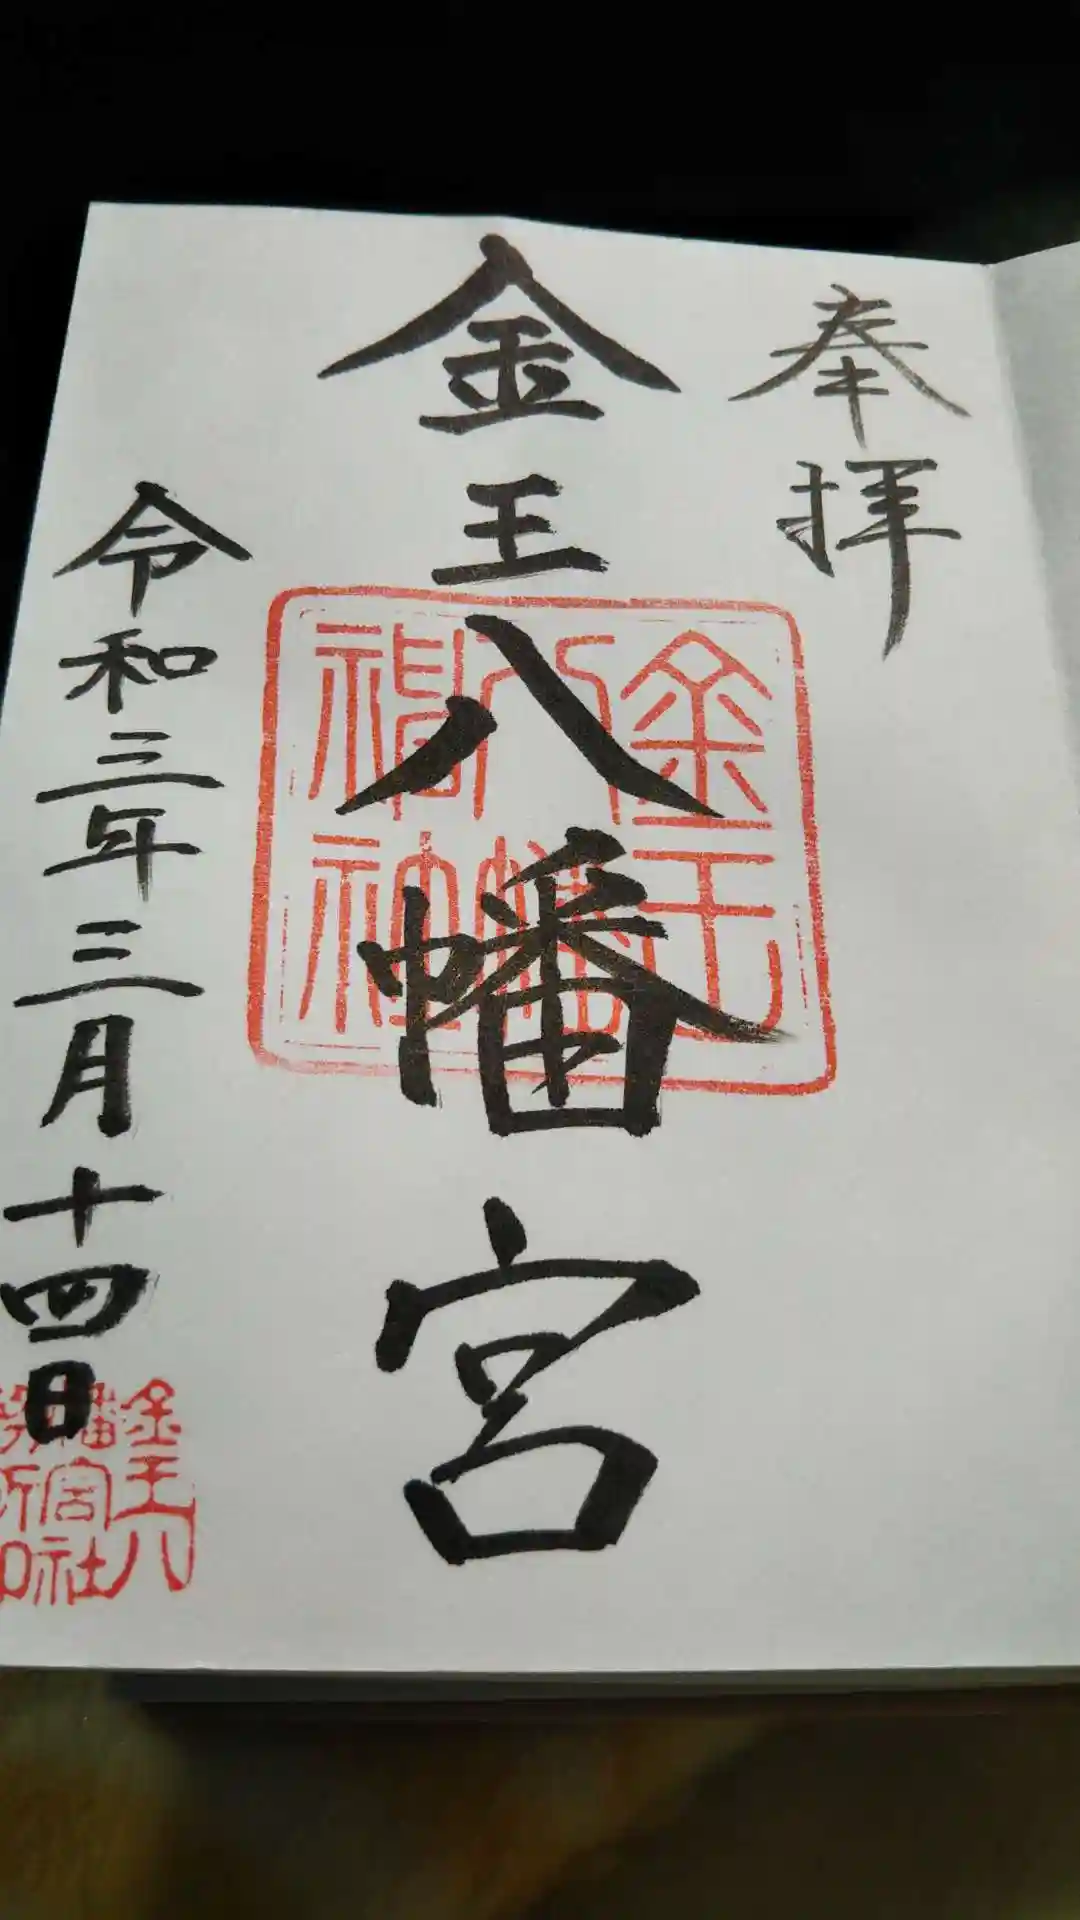 奉拝
金王八幡宮
金王
八幡
神社
令和三年三月十四日
金王八
幡宮社
務所印